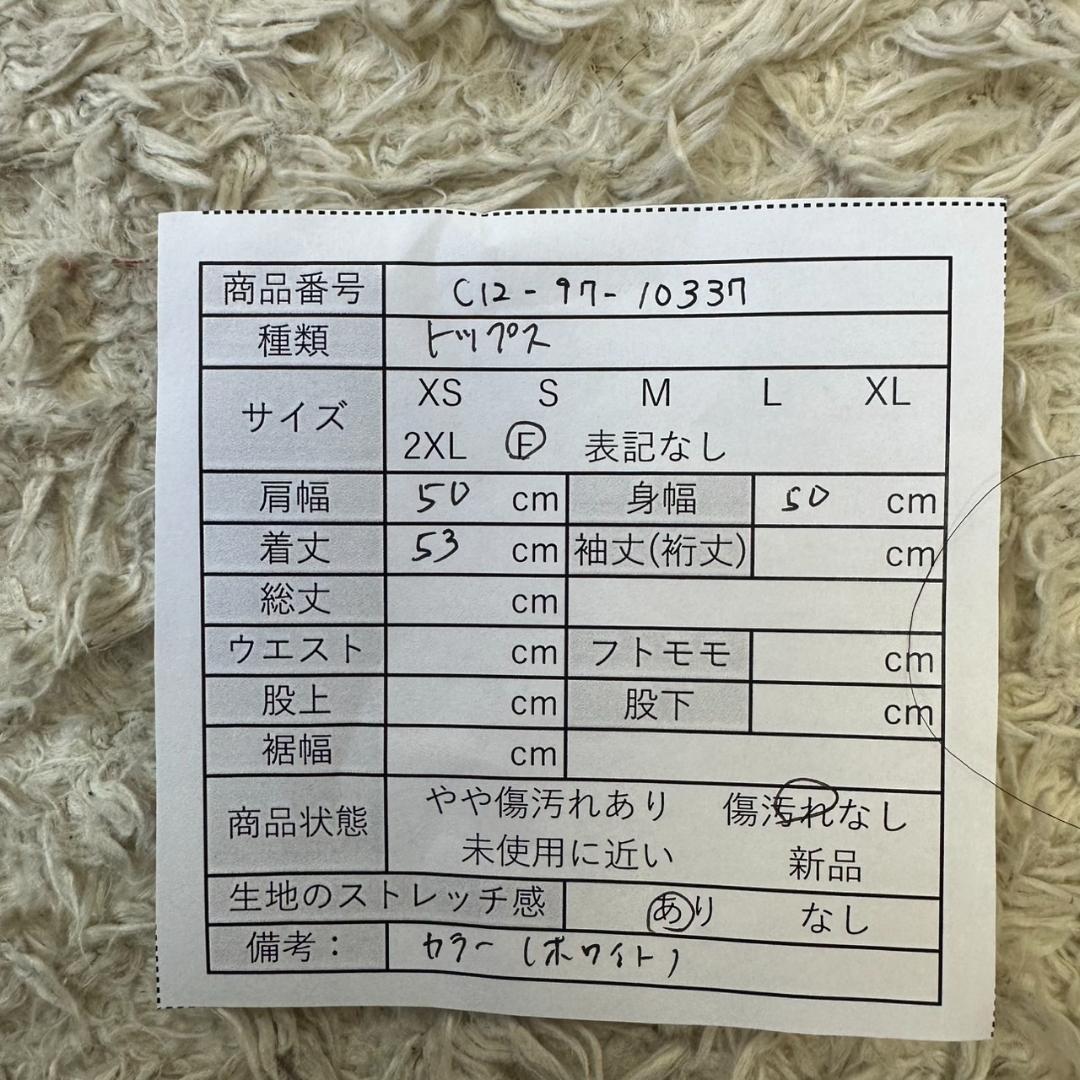 商品番号 C12-97-10337
種類 トップス
サイズ XS S M L XL
2XL F 表記なし
肩幅 50 cm 身幅 50 cm
着丈 53 cm 袖丈(裄丈) cm
総丈 cm
ウエスト cm フトモモ cm
股上 cm 股下 cm
裾幅 cm
商品状態 やや傷汚れあり 傷汚れなし
未使用に近い 新品
生地のストレッチ感 あり なし
備考： カラー (ホワイト)